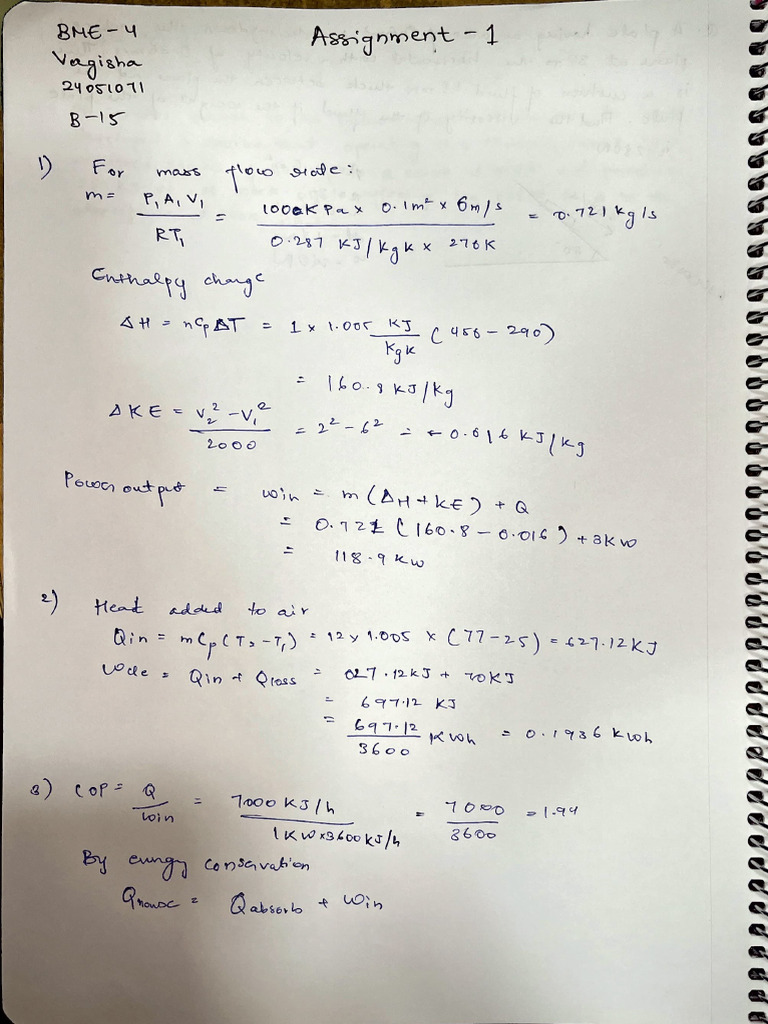 BME-4
Assignment - 1
Vagisha
24051071
B-15
1) For mass flow rate:
m = P₁A₁V₁ / RT₁ = 100KPa × 0.1m² × 6m/s / 0.287 KJ/kgK × 270K = 0.721 kg/s
Enthalpy change
ΔH = nCpΔT = 1 × 1.005 KJ/KgK (450 - 290)
= 160.8 KJ/kg
ΔKE = V₂² - V₁² / 2000 = 2² - 6² = - 0.016 KJ/kg
Power output = Win = m(ΔH + KE) + Q
= 0.721 (160.8 - 0.016) + 3kw
= 118.9 kw
2) Heat added to air
Qin = mCp(T₂ - T₁) = 12 × 1.005 × (77 - 25) = 627.12 KJ
Wele = Qin + Qloss = 627.12 KJ + 70KJ
= 697.12 KJ
= 697.12 / 3600 Kwh = 0.1936 kwh
3) COP = Q / Win = 7000 KJ/h / 1KW×3600KJ/h = 7000 / 3600 = 1.94
By energy conservation
= Qabsorb + Win